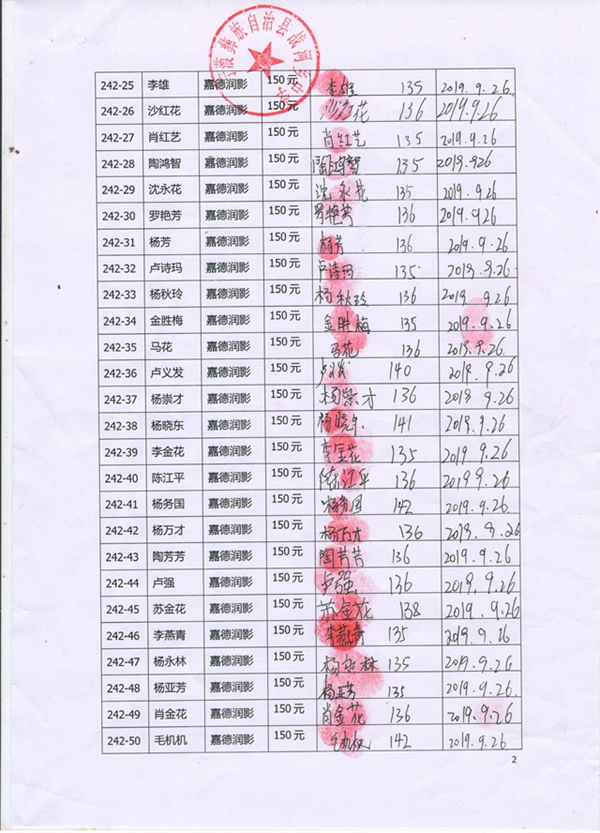 彝族自治县战河乡中学
242-25 李雄 嘉德润影 150元 李雄 135 2019.9.26
242-26 沙红花 嘉德润影 150元 沙红花 136 2019.9.26
242-27 肖红艺 嘉德润影 150元 肖红艺 135 2019.9.26
242-28 陶鸿智 嘉德润影 150元 陶鸿智 135 2019.926
242-29 沈永花 嘉德润影 150元 沈永花 135 2019.9.26
242-30 罗艳芳 嘉德润影 150元 罗艳芳 136 2019.9.26
242-31 杨芳 嘉德润影 150元 杨芳 136 2019.9.26
242-32 卢诗玛 嘉德润影 150元 卢诗玛 135 2019.9.26
242-33 杨秋玲 嘉德润影 150元 杨秋玲 136 2019.9.26
242-34 金胜梅 嘉德润影 150元 金胜梅 135 2019.9.26
242-35 马花 嘉德润影 150元 马花 136 2019.9.26
242-36 卢义发 嘉德润影 150元 卢义发 140 2019.9.26
242-37 杨崇才 嘉德润影 150元 杨崇才 136 2019.9.26
242-38 杨晓东 嘉德润影 150元 杨晓东 141 2019.9.26
242-39 李金花 嘉德润影 150元 李金花 135 2019.9.26
242-40 陈江平 嘉德润影 150元 陈江平 136 2019.9.26
242-41 杨务国 嘉德润影 150元 杨务国 142 2019.9.26
242-42 杨万才 嘉德润影 150元 杨万才 136 2019.9.26
242-43 陶芳芳 嘉德润影 150元 陶芳芳 136 2019.9.26
242-44 卢强 嘉德润影 150元 卢强 136 2019.9.26
242-45 苏金花 嘉德润影 150元 苏金花 138 2019.9.26
242-46 李燕青 嘉德润影 150元 李燕青 135 2019.9.26
242-47 杨永林 嘉德润影 150元 杨永林 135 2019.9.26
242-48 杨亚芳 嘉德润影 150元 杨亚芳 135 2019.9.26
242-49 肖金花 嘉德润影 150元 肖金花 136 2019.9.26
242-50 毛机机 嘉德润影 150元 毛机机 142 2019.9.26
2